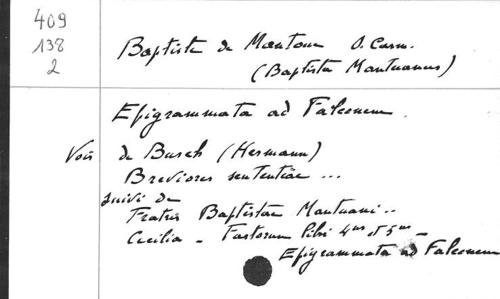 409
138
2
Baptiste de Mantoue O. Carm.
(Baptista Mantuanus)
Epigrammata ad Falconem.
Voir de Busch (Hermann)
Breviores sententiae ...
suivi de
Fratris Baptistae Mantuani ..
Cecilia - Fastorum libri 4us et 5us -
Epigrammata ad Falconem